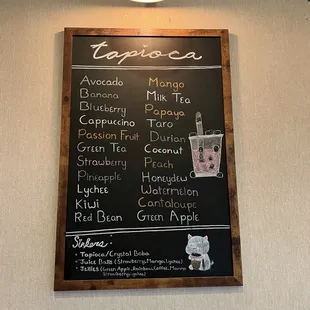 tapioca
Avocado
Banana
Blueberry
Cappuccino
Passion Fruit
Green Tea
Strawberry
Pineapple
Lychee
Kiwi
Red Bean
Mango
Milk Tea
Papaya
Taro
Durian
Coconut
Peach
Honeydew
Watermelon
Cantaloupe
Green Apple
Sinkers:
• Tapioca/Crystal Boba
• Juice Balls (Strawberry, Mango, Lychee)
• Jellies (Green Apple, Rainbow, Coffee, Mango
Strawberry, Lychee)